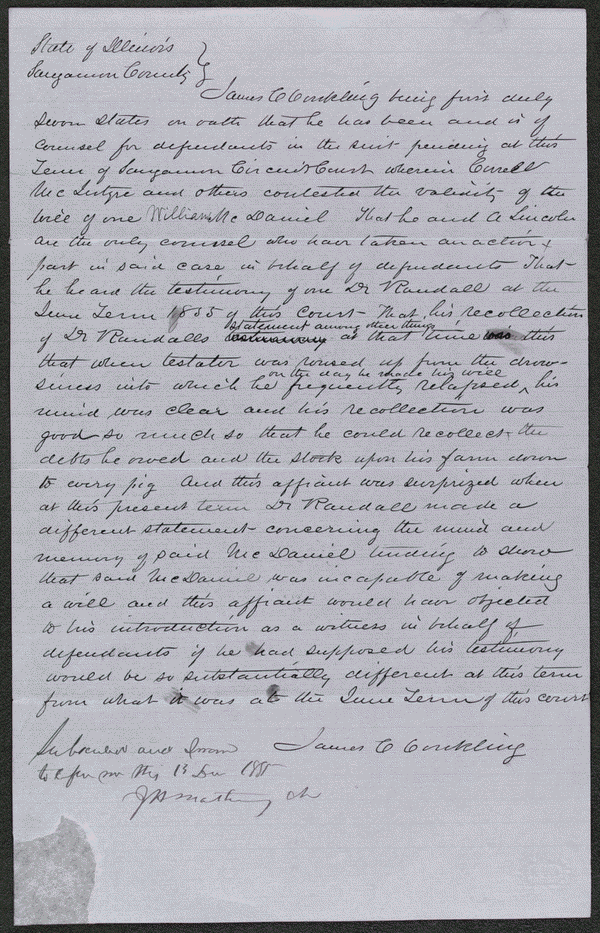 State of Illinois
Sangamon County
James C Conkling being first duly
sworn states on oath that he has been and is of
counsel for defendants in the suit pending at this
Term of Sangamon Circuit Court wherein
McIntyre and others contested the validity of the
will of one William McDaniel That he and A Lincoln
are the only counsel who have taken an active
part in said case in behalf of defendants That
he heard the testimony of one Dr Randall at the
June Term 1855 of this Court That his recollection
of Dr Randalls statement among other things at that time was this
that when testator was roused up from the drow-
siness into which he frequently relapsed, on the day he made his will his
mind was clear and his recollection was
good so much so that he could recollect the
debts he owed and the stock upon his farm down
to every pig And this affiant was surprized when
at this present term Dr Randall made a
different statement concerning the mind and
memory of said McDaniel tending to show
that said McDaniel was incapable of making
a will and this affiant would have objected
to his introduction as a witness in behalf of
defendants if he had supposed his testimony
would be so substantially different at this term
from what it was at the June Term of this court
James C Conkling
Subscribed and Sworn
to before me this 13 Dec 1855